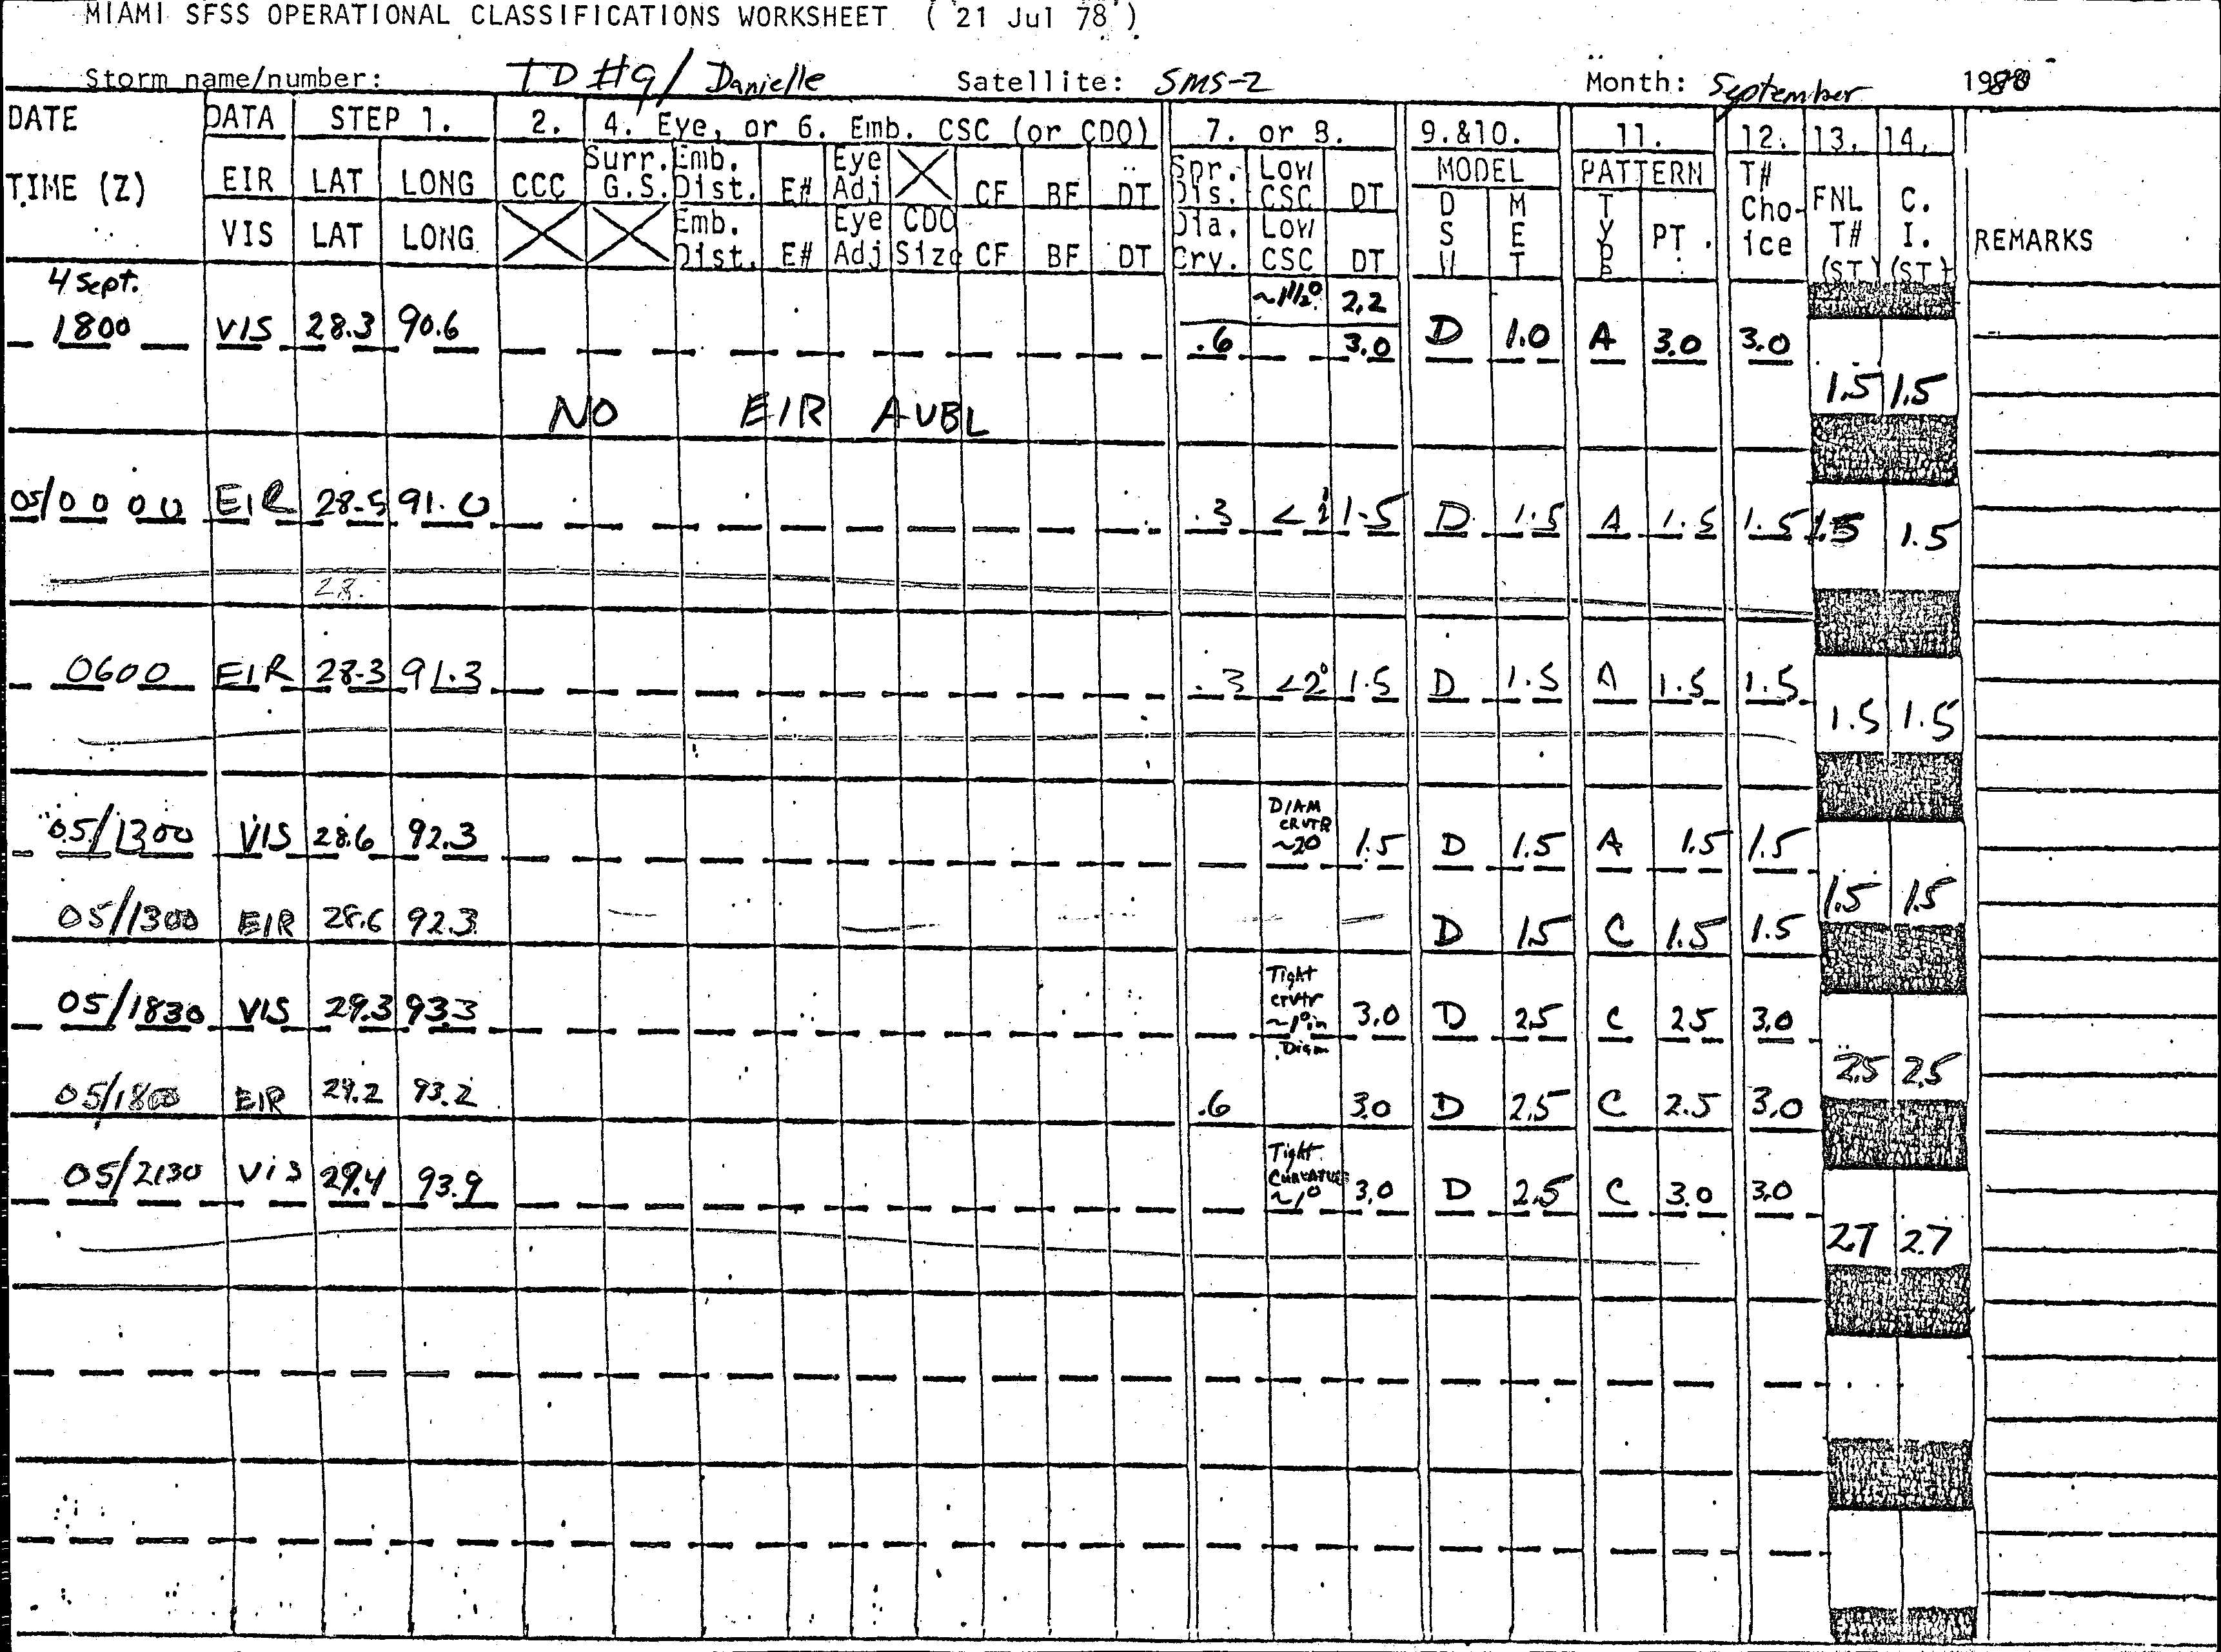 MIAMI SFSS OPERATIONAL CLASSIFICATIONS WORKSHEET ( 21 Jul 78 )
Storm name/number: TD #9/ Danielle Satellite: SMS-2 Month: September 1980
DATE DATA STEP 1. 2. 4. Eye, or 6. Emb. CSC (or CDO) 7. or 8. 9.&10. 11. 12. 13. 14.
TIME (Z) EIR LAT LONG CCC Surr. G.S. Emb. Dist. E# Eye Adj CF BF DT Spr. Dis. Low CSC DT MODEL PATTERN T# Choice FNL T# (ST) C. I. (ST) REMARKS
VIS LAT LONG Emb. Dist. E# Eye Adj CDO Size CF BF DT Dia. Crv. Low CSC DT MET TYPE PT.
4 Sept. ~1 1/2° 2.2
1800 VIS 28.3 90.6 .6 3.0 D 1.0 A 3.0 3.0
1.5 1.5
NO EIR AVBL
05/0000 EIR 28.5 91.0 .3 1.5 D 1.5 A 1.5 1.5 1.5 1.5
28.
0600 EIR 28.3 91.3 .3 <2° 1.5 D 1.5 A 1.5 1.5
1.5 1.5
05/1300 VIS 28.6 92.3 DIAM CRVTR ~2° 1.5 D 1.5 A 1.5 1.5
1.5 1.5
05/1300 EIR 28.6 92.3 D 1.5 C 1.5 1.5
05/1830 VIS 29.3 93.3 Tight crvtr ~1° in Diam 3.0 D 2.5 C 2.5 3.0
2.5 2.5
05/1800 EIR 29.2 93.2 .6 3.0 D 2.5 C 2.5 3.0
05/2130 Vis 29.4 93.9 Tight Curvature ~1° 3.0 D 2.5 C 3.0 3.0
2.7 2.7